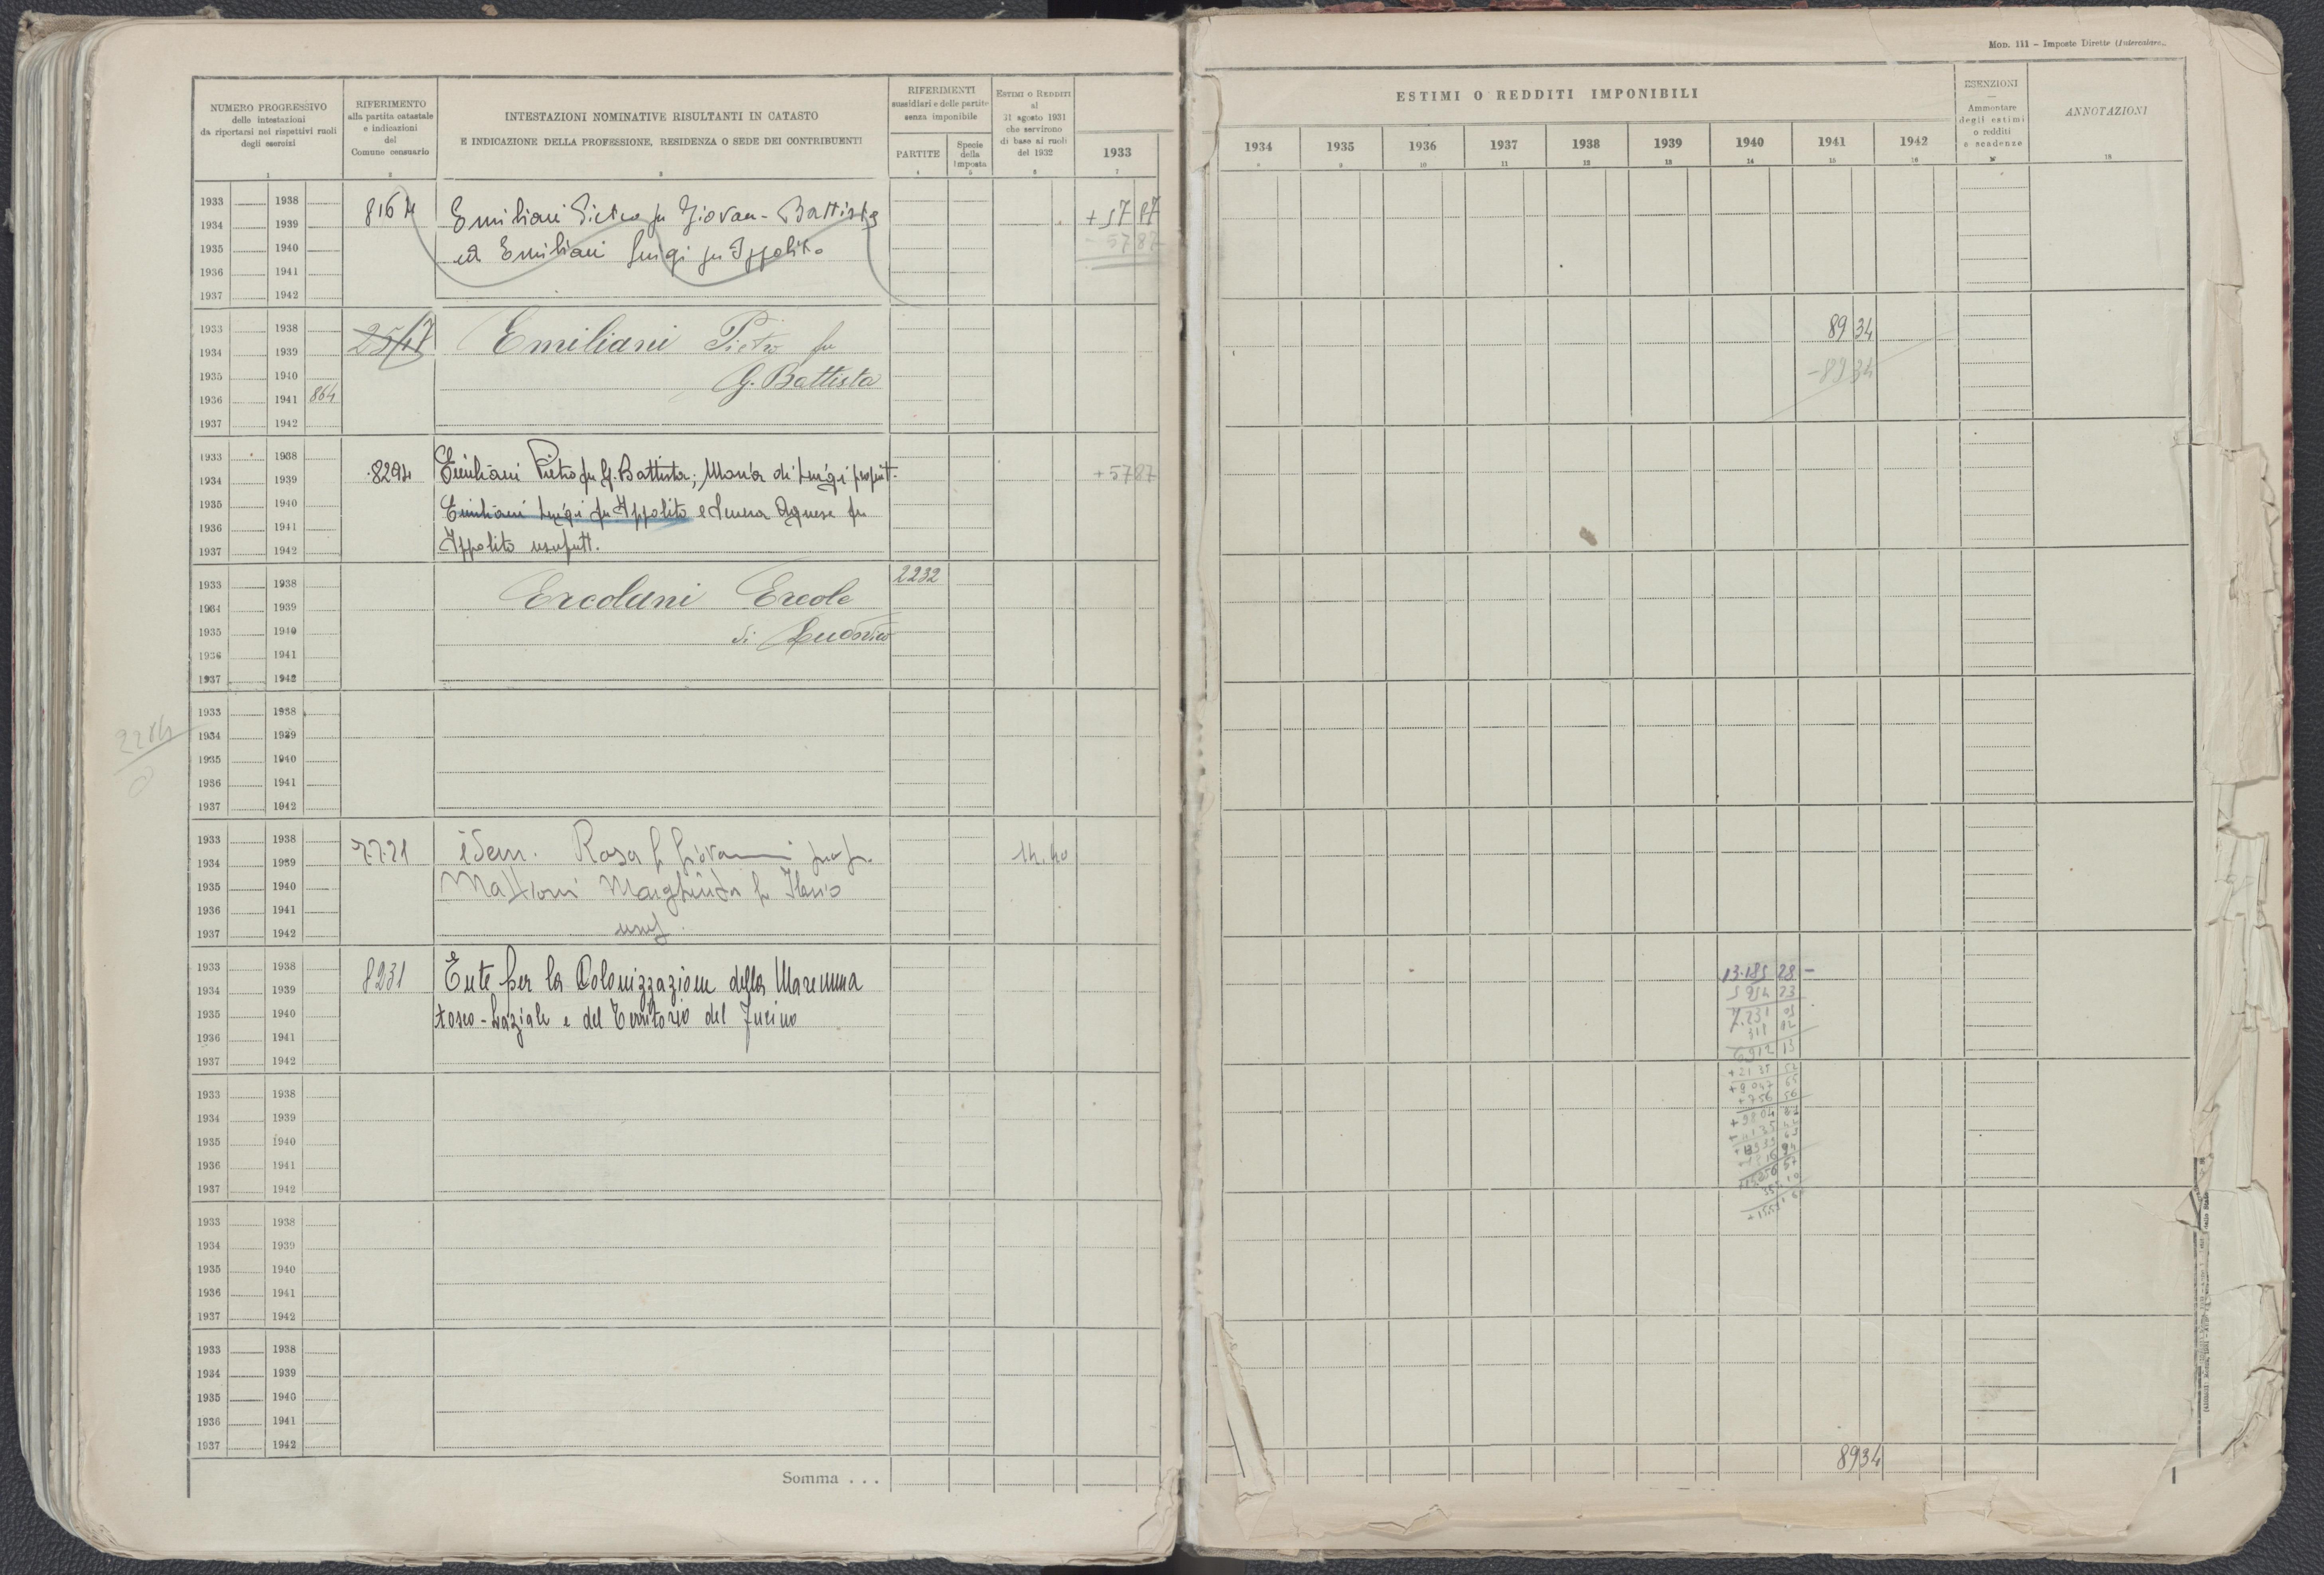 Mod. 111 – Imposte Dirette (Intercalare).
NUMERO PROGRESSIVO
delle intestazioni
da riportarsi nei rispettivi ruoli
degli esercizi
1
RIFERIMENTO
alla partita catastale
e indicazioni
del
Comune censuario
2
INTESTAZIONI NOMINATIVE RISULTANTI IN CATASTO
E INDICAZIONE DELLA PROFESSIONE, RESIDENZA O SEDE DEI CONTRIBUENTI
3
RIFERIMENTI
sussidiari e delle partite
senza imponibile
PARTITE
4
Specie
della
Imposta
5
ESTIMI O REDDITI
al
31 agosto 1931
che servirono
di base ai ruoli
del 1932
6
1933
7
ESTIMI O REDDITI IMPONIBILI
1934 1935 1936 1937 1938 1939 1940 1941 1942
8 9 10 11 12 13 14 15 16
ESENZIONI
—
Ammontare
degli estimi
o redditi
e scadenze
ANNOTAZIONI
18
1933 1938
1934 1939 Emiliani Pietro fu Giovan-Battista + 57 87
1935 1940 ed Emiliani Luigi fu Ippolito - 57 87
1936 1941
1937 1942
1933 1938 2547 Emiliani Pietro fu 89 34
1934 1939
1935 1940 G. Battista -89 34
1936 1941 864
1937 1942
1933 1938
1934 1939 8294 Emiliani Pietro fu G. Battista; Maria di Luigi propriet. + 57 87
1935 1940 Emiliani Luigi fu Ippolito e Agnese fu
1936 1941
1937 1942 Ippolito usufrutt.
1933 1938 2232
1934 1939 Ercolani Ercole
1935 1940 di Ludovico
1936 1941
1937 1942
1933 1938
1934 1939
1935 1940
1936 1941
1937 1942
1933 1938 7721 idem. Rosa fu Giovanni prop.
1934 1939 14.40
1935 1940 Mattioni Margherita fu Ilario
1936 1941
1937 1942 usuf.
1933 1938 8231 Ente per la Colonizzazione della Maremma 13.185 28 -
1934 1939 5954 23
1935 1940 tosco-Laziale e del Territorio del Fucino 7.231 05
1936 1941
1937 1942 6912 13
1933 1938
+ 9047 65
+ 756 56
1934 1939
1935 1940
1936 1941
1937 1942
1933 1938
1934 1939
1935 1940
1936 1941
1937 1942
1933 1938
1934 1939
1935 1940
1936 1941
1937 1942
Somma . . . 89 34